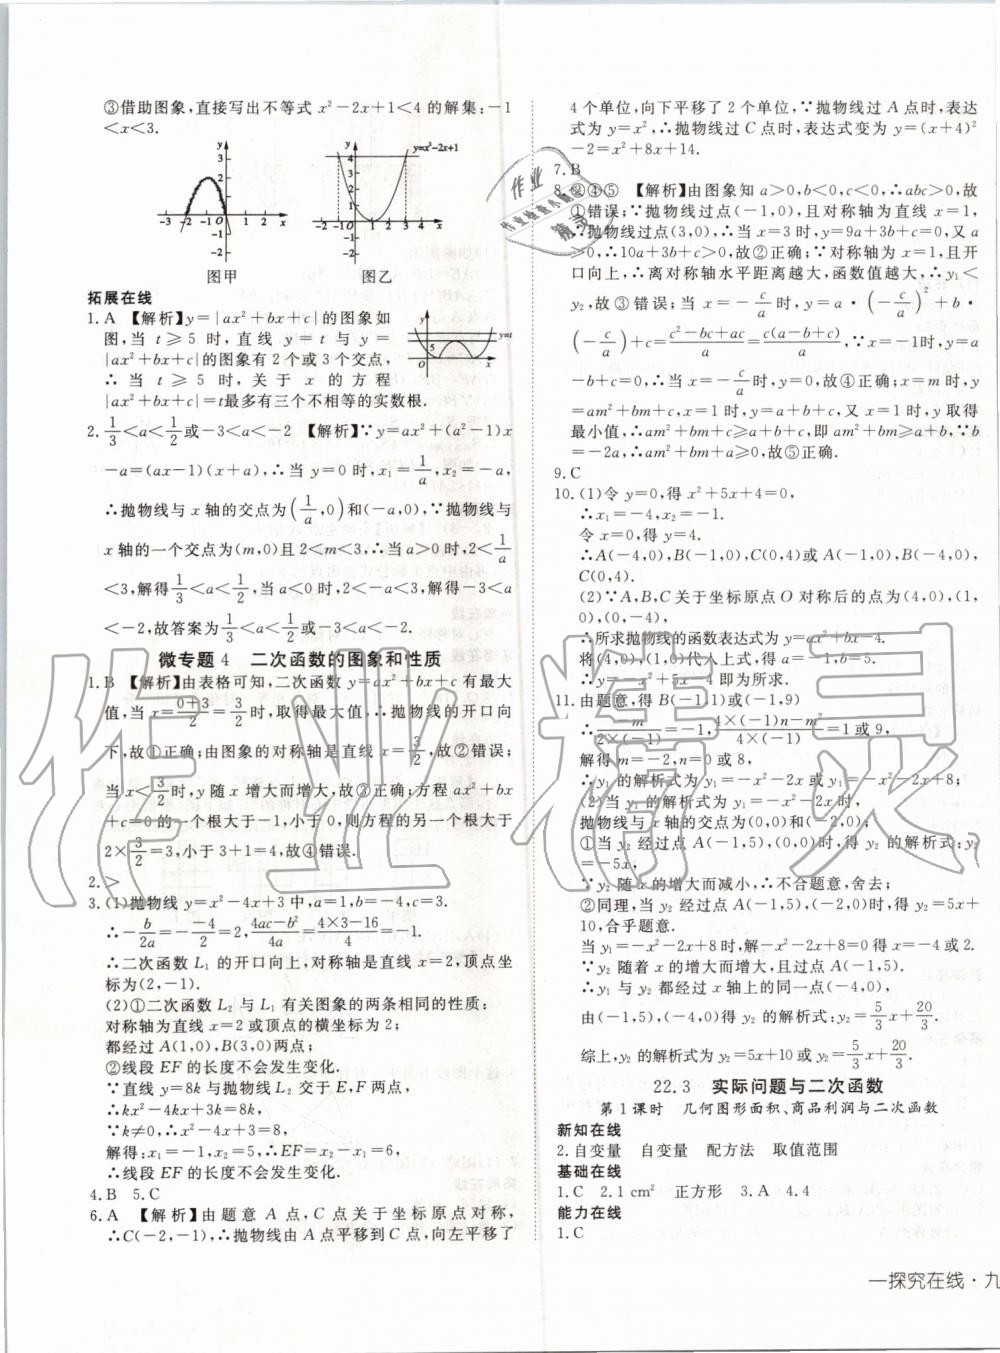 ③借助图象,直接写出不等式 x²-2x+1<4 的解集:-1
<x<3.
图甲
图乙
y=x²-2x+1
拓展在线
1.A 【解析】y=|ax²+bx+c|的图象如
图,当 t⩾5 时,直线 y=t 与 y=
|ax²+bx+c|的图象有2个或3个交点,
∴当 t⩾5 时,关于 x 的方程
|ax²+bx+c|=t最多有三个不相等的实数根.
2.1/3<a<1/2或-3<a<-2 【解析】∵y=ax²+(a²-1)x
-a=(ax-1)(x+a),∴当 y=0 时,x₁=1/a,x₂=-a,
∴抛物线与 x 轴的交点为(1/a,0)和(-a,0),∵抛物线与
x 轴的一个交点为(m,0)且2<m<3,∴当 a>0时,2<1/a
<3,解得1/3<a<1/2;当 a<0时,2<-a<3,解得-3<a
<-2,故答案为1/3<a<1/2或-3<a<-2.
微专题4 二次函数的图象和性质
1.B 【解析】由表格可知,二次函数 y=ax²+bx+c 有最大
值,当 x=(0+3)/2=3/2时,取得最大值,∴抛物线的开口向
下,故①正确;由图象的对称轴是直线 x=3/2,故②错误;
当 x<3/2时,y 随 x 增大而增大,故③正确;方程 ax²+bx
+c=0的一个根大于-1,小于0,则方程的另一个根大于
2×3/2=3,小于3+1=4,故④错误.
2.>
3.(1)抛物线 y=x²-4x+3中,a=1,b=-4,c=3.
∴-b/2a=-(-4)/2=2,(4ac-b²)/4a=(4×3-16)/4=-1.
∴二次函数 L₁ 的开口向上,对称轴是直线 x=2,顶点坐
标为(2,-1).
(2)①二次函数 L₂ 与 L₁ 有关图象的两条相同的性质:
对称轴为直线 x=2或顶点的横坐标为2;
都经过 A(1,0),B(3,0)两点;
②线段 EF 的长度不会发生变化.
∵直线 y=8k 与抛物线 L₂ 交于 E,F 两点,
∴kx²-4kx+3k=8k,
∵k≠0,∴x²-4x+3=8,
解得:x₁=-1,x₂=5,∴EF=x₂-x₁=6,
∴线段 EF 的长度不会发生变化.
4.B 5.C
6.A 【解析】由题意 A 点,C 点关于坐标原点对称,
∴C(-2,-1),∴抛物线由 A 点平移到 C 点,向左平移了
4个单位,向下平移了2个单位,∵抛物线过 A 点时,表达
式为 y=x²,∴抛物线过 C 点时,表达式变为 y=(x+4)²
-2=x²+8x+14.
7.B
8.②④⑤ 【解析】由图象知 a>0,b<0,c<0,∴abc>0,故
①错误;∵抛物线过点(-1,0),且对称轴为直线 x=1,
∴抛物线过点(3,0),∴当 x=3时,y=9a+3b+c=0,又 a
>0,∴10a+3b+c>0,故②正确;∵对称轴为 x=1,且开
口向上,∴离对称轴水平距离越大,函数值越大,∴y₁<
y₂,故③错误;当 x=-c/a时,y=a·(-c/a)²+b·
(-c/a)+c=(c²-bc+ac)/a=c(a-b+c)/a,∵x=-1时,y=a
-b+c=0,∴当 x=-c/a时,y=0,故④正确;x=m 时,y
=am²+bm+c,x=1时,y=a+b+c,又 x=1时,y 取得
最小值,∴am²+bm+c⩾a+b+c,即 am²+bm⩾a+b,∵b
=-2a,∴am²+bm+a⩾0,故⑤正确.
9.C
10.(1)令 y=0,得 x²+5x+4=0,
∴x₁=-4,x₂=-1.
令 x=0,得 y=4.
∴A(-4,0),B(-1,0),C(0,4)或 A(-1,0),B(-4,0),
C(0,4).
(2)∵A,B,C 关于坐标原点 O 对称后的点为(4,0),(1,
0),(0,-4),
∴所求抛物线的函数表达式为 y=ax²+bx-4.
将(4,0),(1,0)代入上式,得 a=-1,b=5.
∴y=-x²+5x-4即为所求.
11.由题意,得 B(-1,1)或(-1,9)
∴-(-m)/(2×(-1))=-1,(4×(-1)n-m²)/(4×(-1))=1或9,
解得 m=-2,n=0或8,
∴y₁ 的解析式为 y₁=-x²-2x或 y₁=-x²-2x+8;
(2)当 y₁ 的解析式为 y₁=-x²-2x时,
抛物线与 x 轴的交点为(0,0)和(-2,0);
①当 y₂ 经过点 A(-1,5),(0,0)时,得 y₂ 的解析式:y₂
=-5x,
∵y₂ 随 x 的增大而减小,∴不合题意,舍去;
②同理,当 y₂ 经过点 A(-1,5),(-2,0)时,得 y₂=5x+
10,合乎题意.
当 y₁=-x²-2x+8时,解-x²-2x+8=0得 x=-4或2.
∵y₂ 随着 x 的增大而增大,且过点 A(-1,5).
∴y₁ 与 y₂ 都经过 x 轴上的同一点(-4,0),
由(-1,5),(-4,0)得 y₂ 的解析式:y₂=5/3x+20/3.
综上,y₂ 的解析式为 y₂=5x+10或 y₂=5/3x+20/3.
22.3 实际问题与二次函数
第1课时 几何图形面积、商品利润与二次函数
新知在线
2.自变量 自变量 配方法 取值范围
基础在线
1.C 2.1 cm² 正方形 3.A 4.4
能力在线
1.C
一探究在线·九
作业精灵